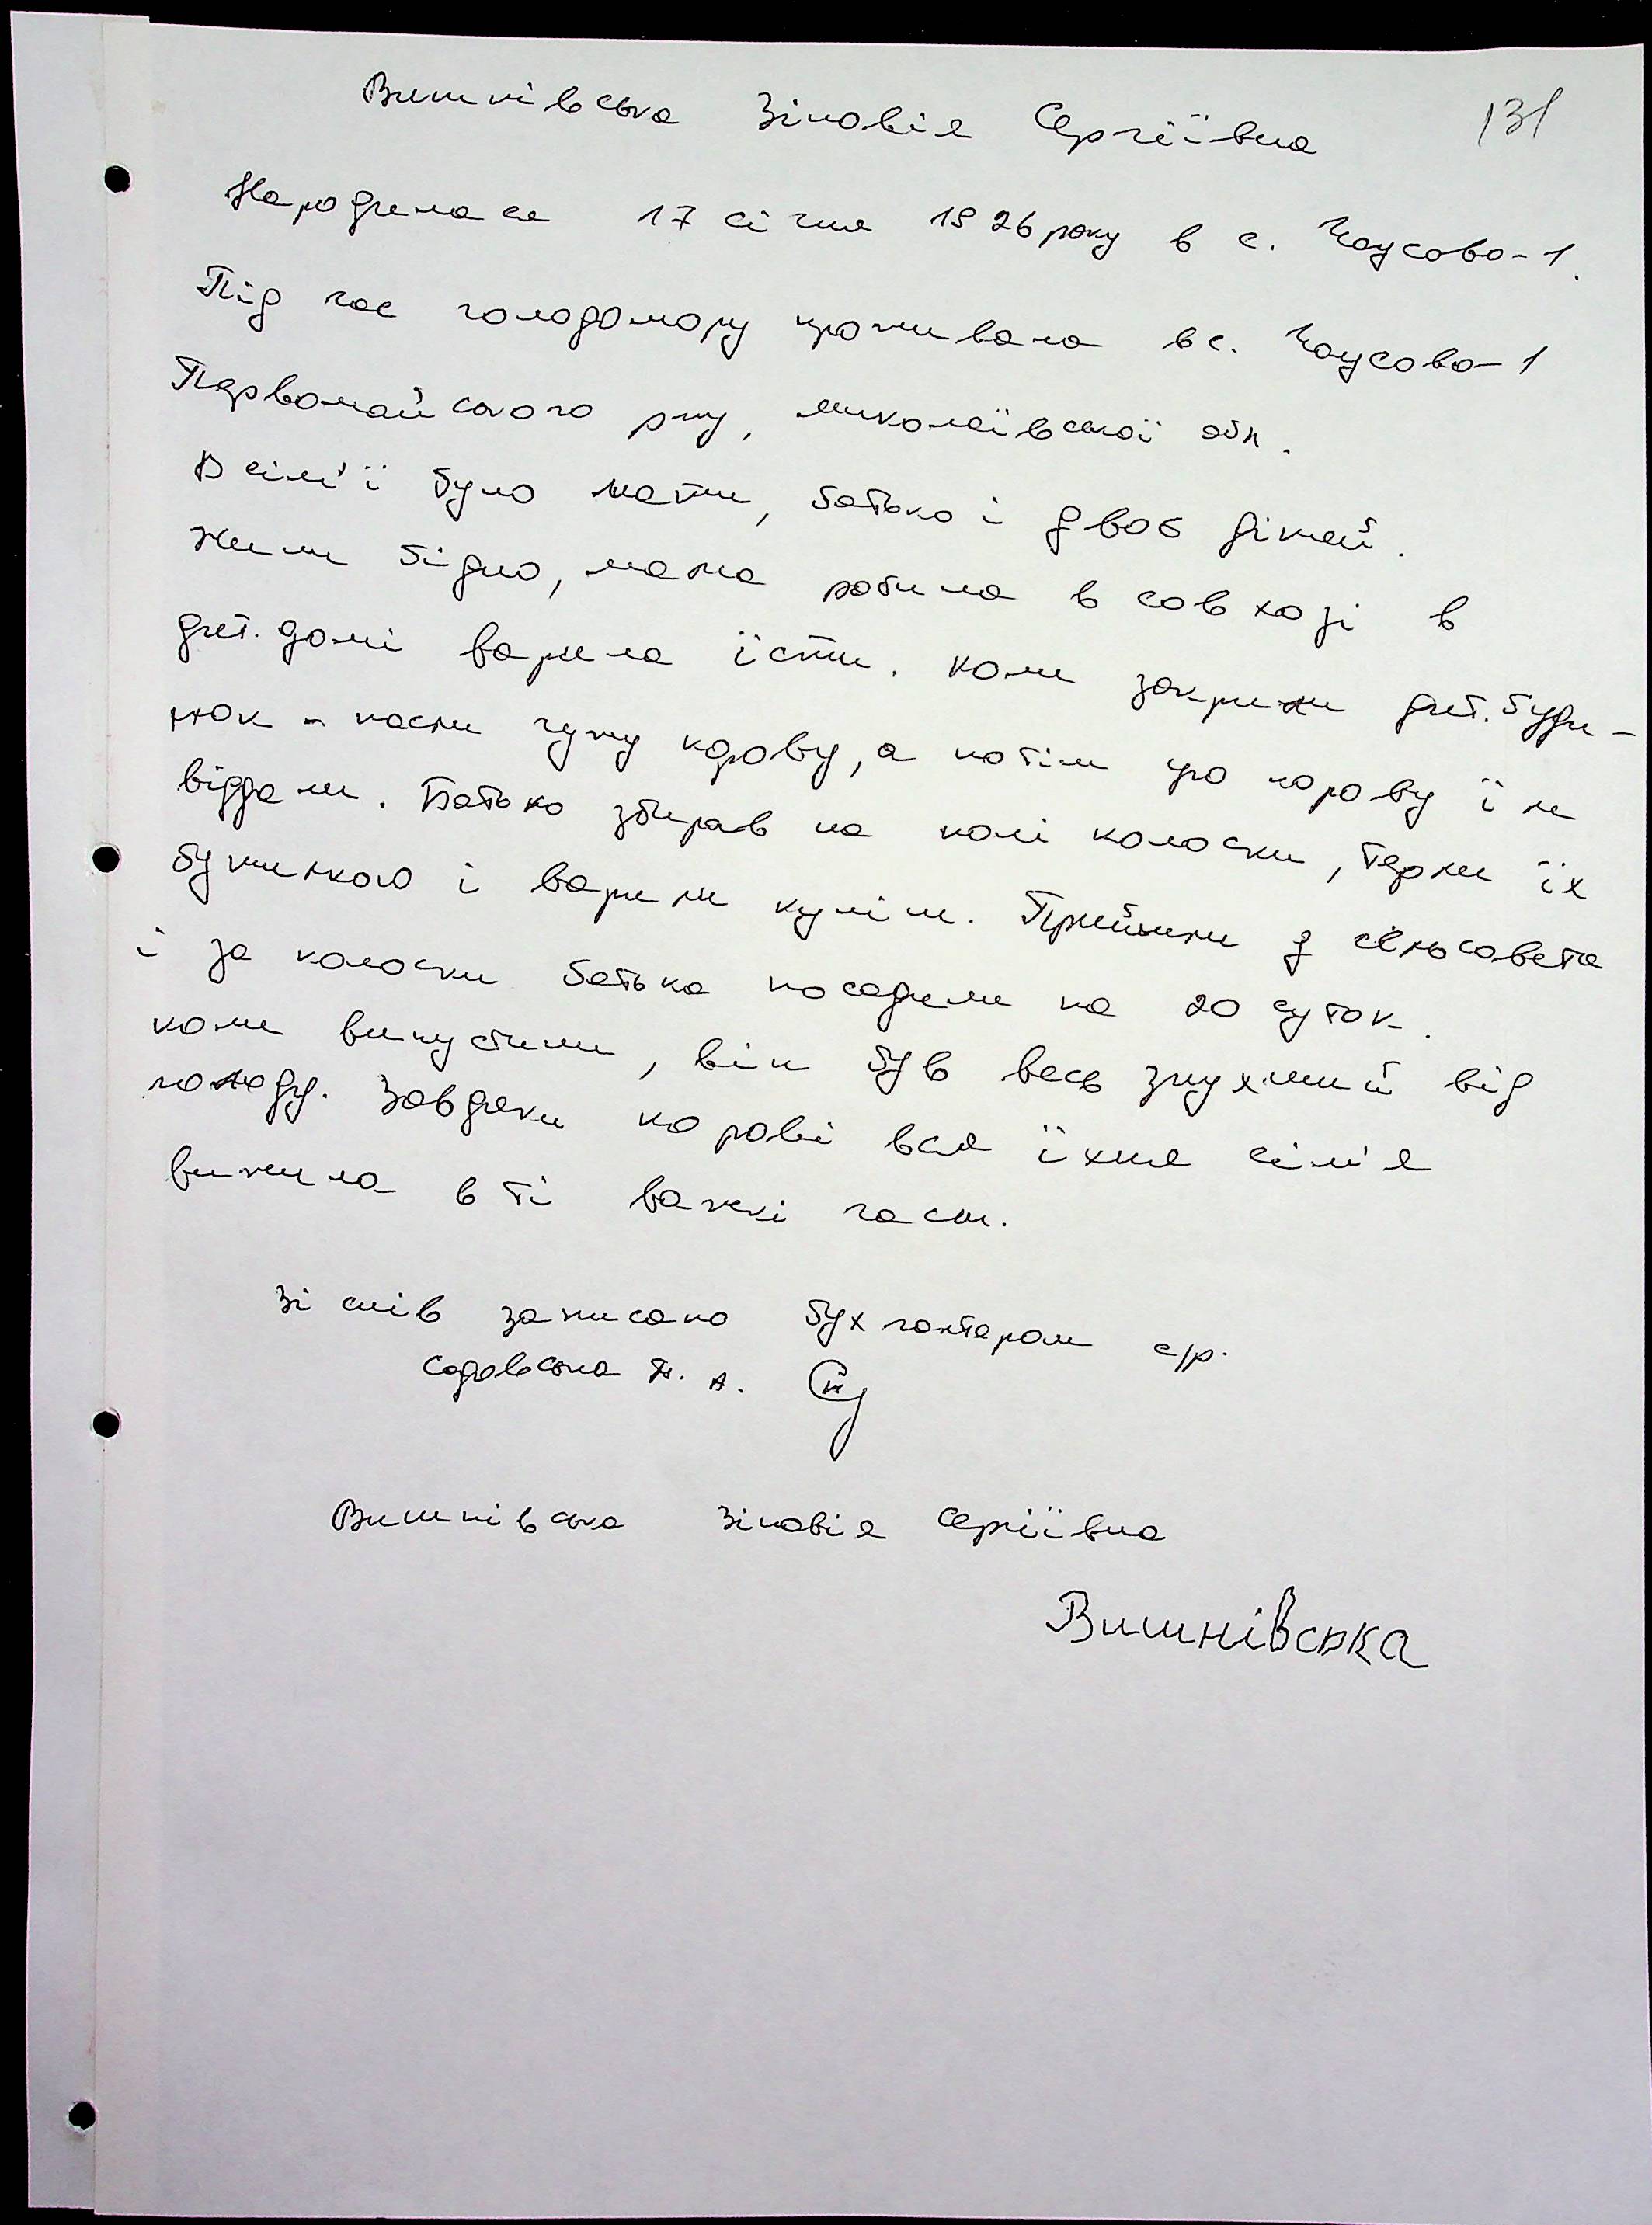 131
Вишнівська Зіновія Сергіївна
Народилася 17 січня 1926 року в с. Чаусово-1.
Під час голодомору проживала в с. Чаусово-1
Первомайського р-ну, Миколаївської обл.
В сім'ї було мати, батько і двоє дітей.
Жили бідно, мама робила в совхозі в
дит. домі варила їсти. Коли закрили дит. буди-
нок - пасли чужу корову, а потім цю корову їм
віддали. Батько збирав на полі колоски, терли їх
бутилкою і варили куліш. Прийшли з сільсовета
і за колоски батька посадили на 20 суток.
Коли випустили, він був весь зпухший від
голоду. Завдяки корові вся їхня сім'я
вижила в ті важкі часи.
Зі слів записано бухгалтером с/р.
Садовська Н. А.
Вишнівська Зіновія Сергіївна
Вишнівська